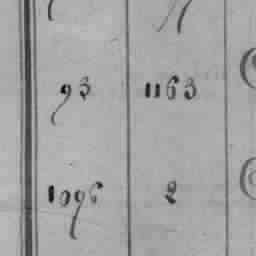 93 1163
1096 2